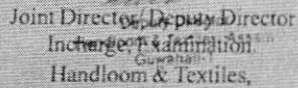 Joint Director/Deputy Director
Incharge, Examination.
Handloom & Textiles,
Guwahati-1